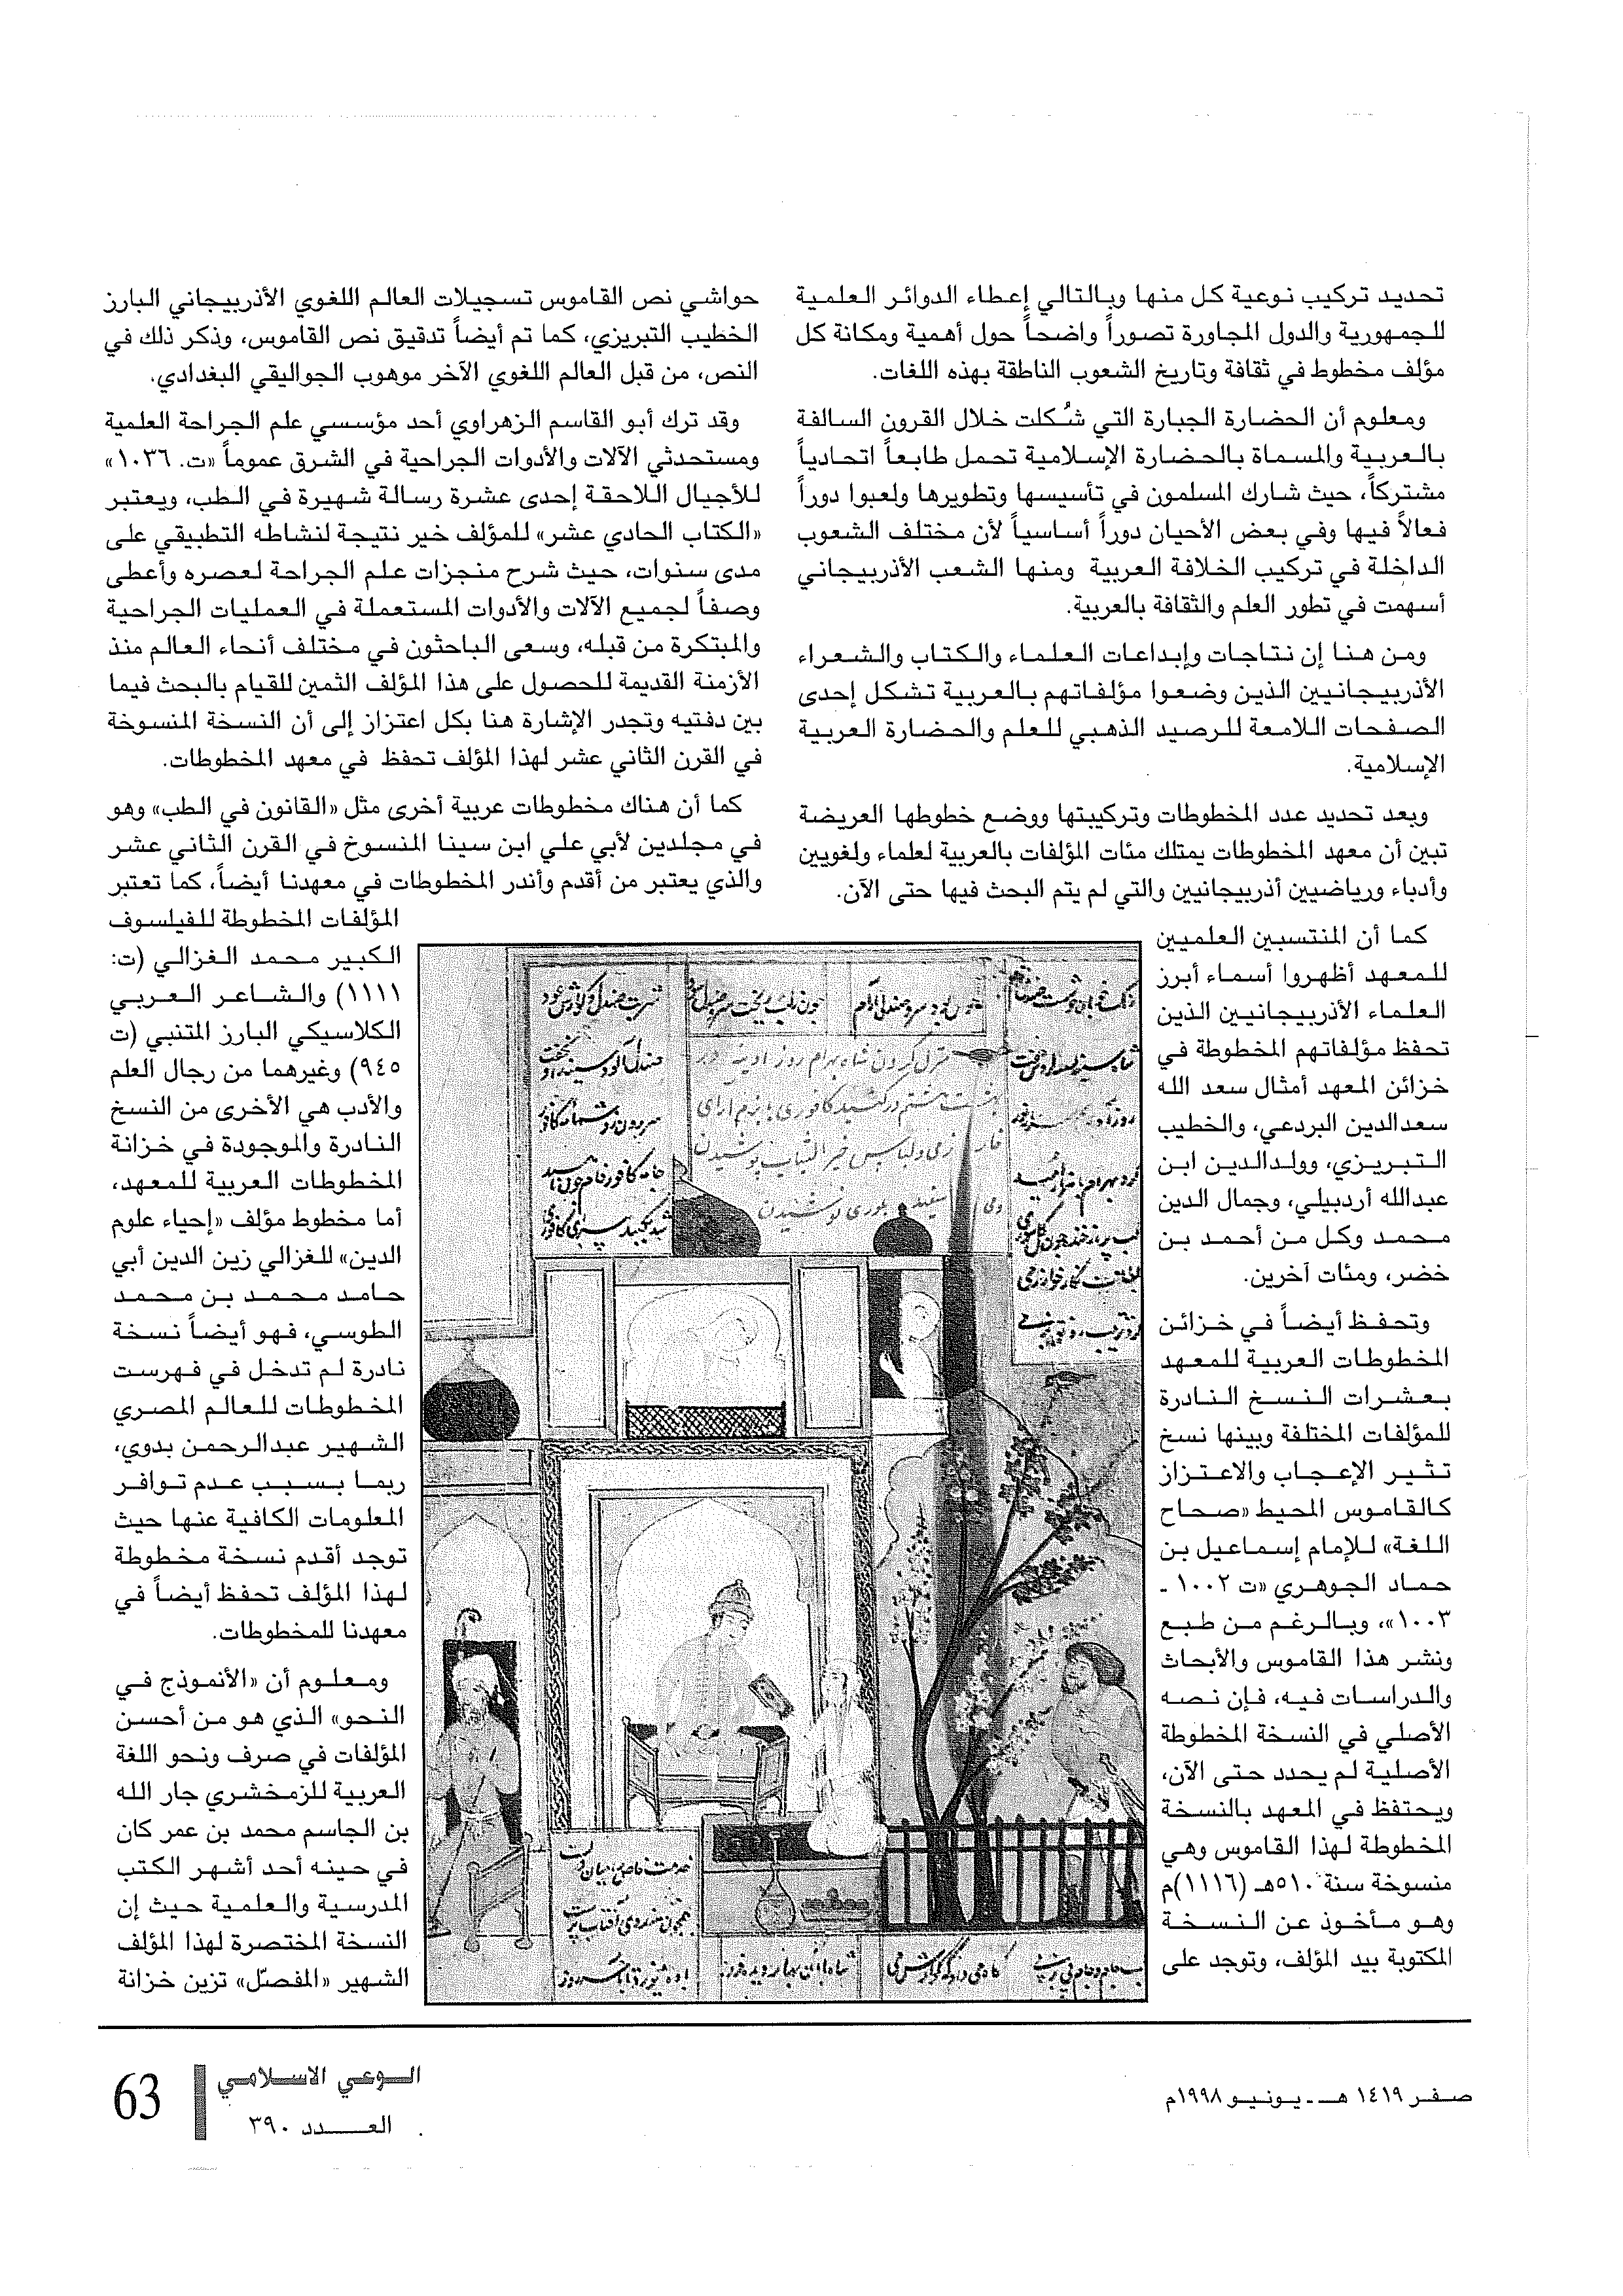 تحديد تركيب نوعية كل منها وبالتالي إعطاء الدوائر العلمية
للجمهورية والدول المجاورة تصوراً واضحاً حول أهمية ومكانة كل
مؤلف مخطوط في ثقافة وتاريخ الشعوب الناطقة بهذه اللغات.
ومعلوم أن الحضارة الجبارة التي شُكلت خلال القرون السالفة
بالعربية والمسماة بالحضارة الإسلامية تحمل طابعاً اتحادياً
مشتركاً، حيث شارك المسلمون في تأسيسها وتطويرها ولعبوا دوراً
فعالاً فيها وفي بعض الأحيان دوراً أساسياً لأن مختلف الشعوب
الداخلة في تركيب الخلافة العربية ومنها الشعب الأذربيجاني
أسهمت في تطور العلم والثقافة بالعربية.
ومن هنا إن نتاجات وإبداعات العلماء والكتاب والشعراء
الأذربيجانيين الذين وضعوا مؤلفاتهم بالعربية تشكل إحدى
الصفحات اللامعة للرصيد الذهبي للعلم والحضارة العربية
الإسلامية.
وبعد تحديد عدد المخطوطات وتركيبتها ووضع خطوطها العريضة
تبين أن معهد المخطوطات يمتلك مئات المؤلفات بالعربية لعلماء ولغويين
وأدباء ورياضيين أذربيجانيين والتي لم يتم البحث فيها حتى الآن.
كما أن المنتسبين العلميين
للمعهد أظهروا أسماء أبرز
العلماء الأذربيجانيين الذين
تحفظ مؤلفاتهم المخطوطة في
خزائن المعهد أمثال سعد الله
سعدالدين البردعي، والخطيب
التبريزي، وولدالدين ابن
عبدالله أردبيلي، وجمال الدين
محمد وكل من أحمد بن
خضر، ومئات آخرين.
وتحفظ أيضاً في خزائن
المخطوطات العربية للمعهد
بعشرات النسخ النادرة
للمؤلفات المختلفة وبينها نسخ
تثير الإعجاب والاعتزاز
كالقاموس المحيط «صحاح
اللغة» للإمام إسماعيل بن
حماد الجوهري «ت ١٠٠٢ -
١٠٠٣»، وبالرغم من طبع
ونشر هذا القاموس والأبحاث
والدراسات فيه، فإن نصه
الأصلي في النسخة المخطوطة
الأصلية لم يحدد حتى الآن،
ويحتفظ في المعهد بالنسخة
المخطوطة لهذا القاموس وهي
منسوخة سنة ٥١٠هـ (١١١٦)م
وهو مأخوذ عن النسخة
المكتوبة بيد المؤلف، وتوجد على
حواشي نص القاموس تسجيلات العالم اللغوي الأذربيجاني البارز
الخطيب التبريزي، كما تم أيضاً تدقيق نص القاموس، وذكر ذلك في
النص، من قبل العالم اللغوي الآخر موهوب الجواليقي البغدادي.
وقد ترك أبو القاسم الزهراوي أحد مؤسسي علم الجراحة العلمية
ومستحدثي الآلات والأدوات الجراحية في الشرق عموماً «ت. ١٠٣٦»
للأجيال اللاحقة إحدى عشرة رسالة شهيرة في الطب، ويعتبر
«الكتاب الحادي عشر» للمؤلف خير نتيجة لنشاطه التطبيقي على
مدى سنوات، حيث شرح منجزات علم الجراحة لعصره وأعطى
وصفاً لجميع الآلات والأدوات المستعملة في العمليات الجراحية
والمبتكرة من قبله، وسعى الباحثون في مختلف أنحاء العالم منذ
الأزمنة القديمة للحصول على هذا المؤلف الثمين للقيام بالبحث فيما
بين دفتيه وتجدر الإشارة هنا بكل اعتزاز إلى أن النسخة المنسوخة
في القرن الثاني عشر لهذا المؤلف تحفظ في معهد المخطوطات.
كما أن هناك مخطوطات عربية أخرى مثل «القانون في الطب» وهو
في مجلدين لأبي علي ابن سينا المنسوخ في القرن الثاني عشر
والذي يعتبر من أقدم وأندر المخطوطات في معهدنا أيضاً، كما تعتبر
المؤلفات المخطوطة للفيلسوف
الكبير محمد الغزالي (ت:
١١١١) والشاعر العربي
الكلاسيكي البارز المتنبي (ت
٩٤٥) وغيرهما من رجال العلم
والأدب هي الأخرى من النسخ
النادرة والموجودة في خزانة
المخطوطات العربية للمعهد،
أما مخطوط مؤلف «إحياء علوم
الدين» للغزالي زين الدين أبي
حامد محمد بن محمد
الطوسي، فهو أيضاً نسخة
نادرة لم تدخل في فهرست
المخطوطات للعالم المصري
الشهير عبدالرحمن بدوي،
ربما بسبب عدم توافر
المعلومات الكافية عنها حيث
توجد أقدم نسخة مخطوطة
لهذا المؤلف تحفظ أيضاً في
معهدنا للمخطوطات.
ومعلوم أن «الأنموذج في
النحو» الذي هو من أحسن
المؤلفات في صرف ونحو اللغة
العربية للزمخشري جار الله
بن الجاسم محمد بن عمر كان
في حينه أحد أشهر الكتب
المدرسية والعلمية حيث إن
النسخة المختصرة لهذا المؤلف
الشهير «المفصّل» تزين خزانة
صفر ١٤١٩ هـ - يونيو ١٩٩٨م
الوعي الاسلامي
العدد ٣٩٠
63